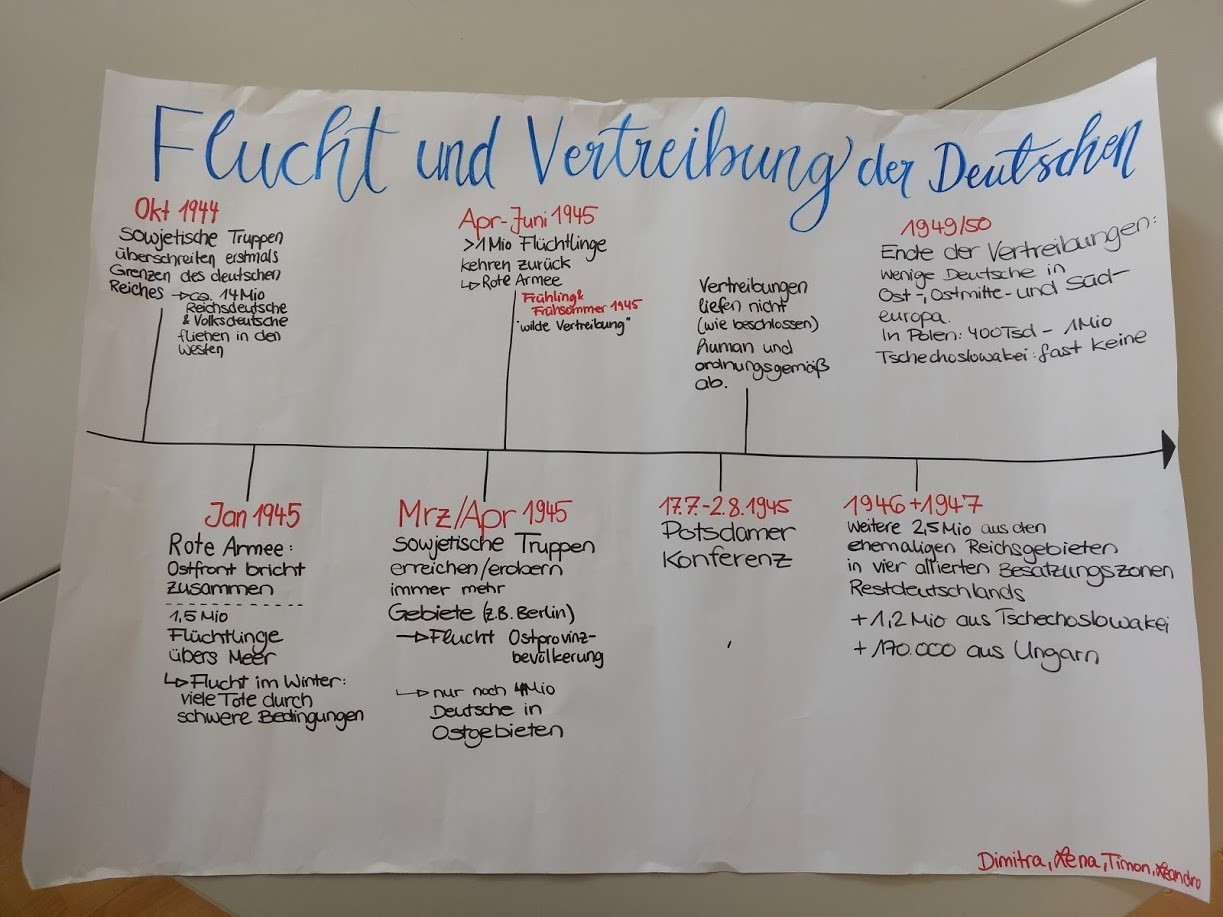 Flucht und Vertreibung der Deutschen
Okt 1944
Sowjetische Truppen
überschreiten erstmals
Grenzen des deutschen
Reiches → ca. 14 Mio
Reichsdeutsche
& Volksdeutsche
fliehen in den
Westen
Apr-Juni 1945
>1 Mio Flüchtlinge
kehren zurück
↳ Rote Armee
Frühling &
Frühsommer 1945
"wilde Vertreibung"
Vertreibungen
liefen nicht
(wie beschlossen)
human und
ordnungsgemäß
ab.
1949/50
Ende der Vertreibungen:
wenige Deutsche in
Ost-, Ostmitte- und Süd-
europa.
In Polen: 400Tsd - 1Mio
Tschechoslowakei: fast keine
Jan 1945
Rote Armee:
Ostfront bricht
zusammen
1,5 Mio
Flüchtlinge
übers Meer
↳ Flucht im Winter:
viele Tote durch
schwere Bedingungen
Mrz/Apr 1945
Sowjetische Truppen
erreichen/erobern
immer mehr
Gebiete (z.B. Berlin)
→ Flucht Ostprovinz-
bevölkerung
↳ nur noch 4Mio
Deutsche in
Ostgebieten
17.7.-2.8.1945
Potsdamer
Konferenz
1946 + 1947
Weitere 2,5 Mio aus den
ehemaligen Reichsgebieten
in vier alliierten Besatzungszonen
Restdeutschlands
+ 1,2 Mio aus Tschechoslowakei
+ 170.000 aus Ungarn
Dimitra, Xena, Timon, Leandro